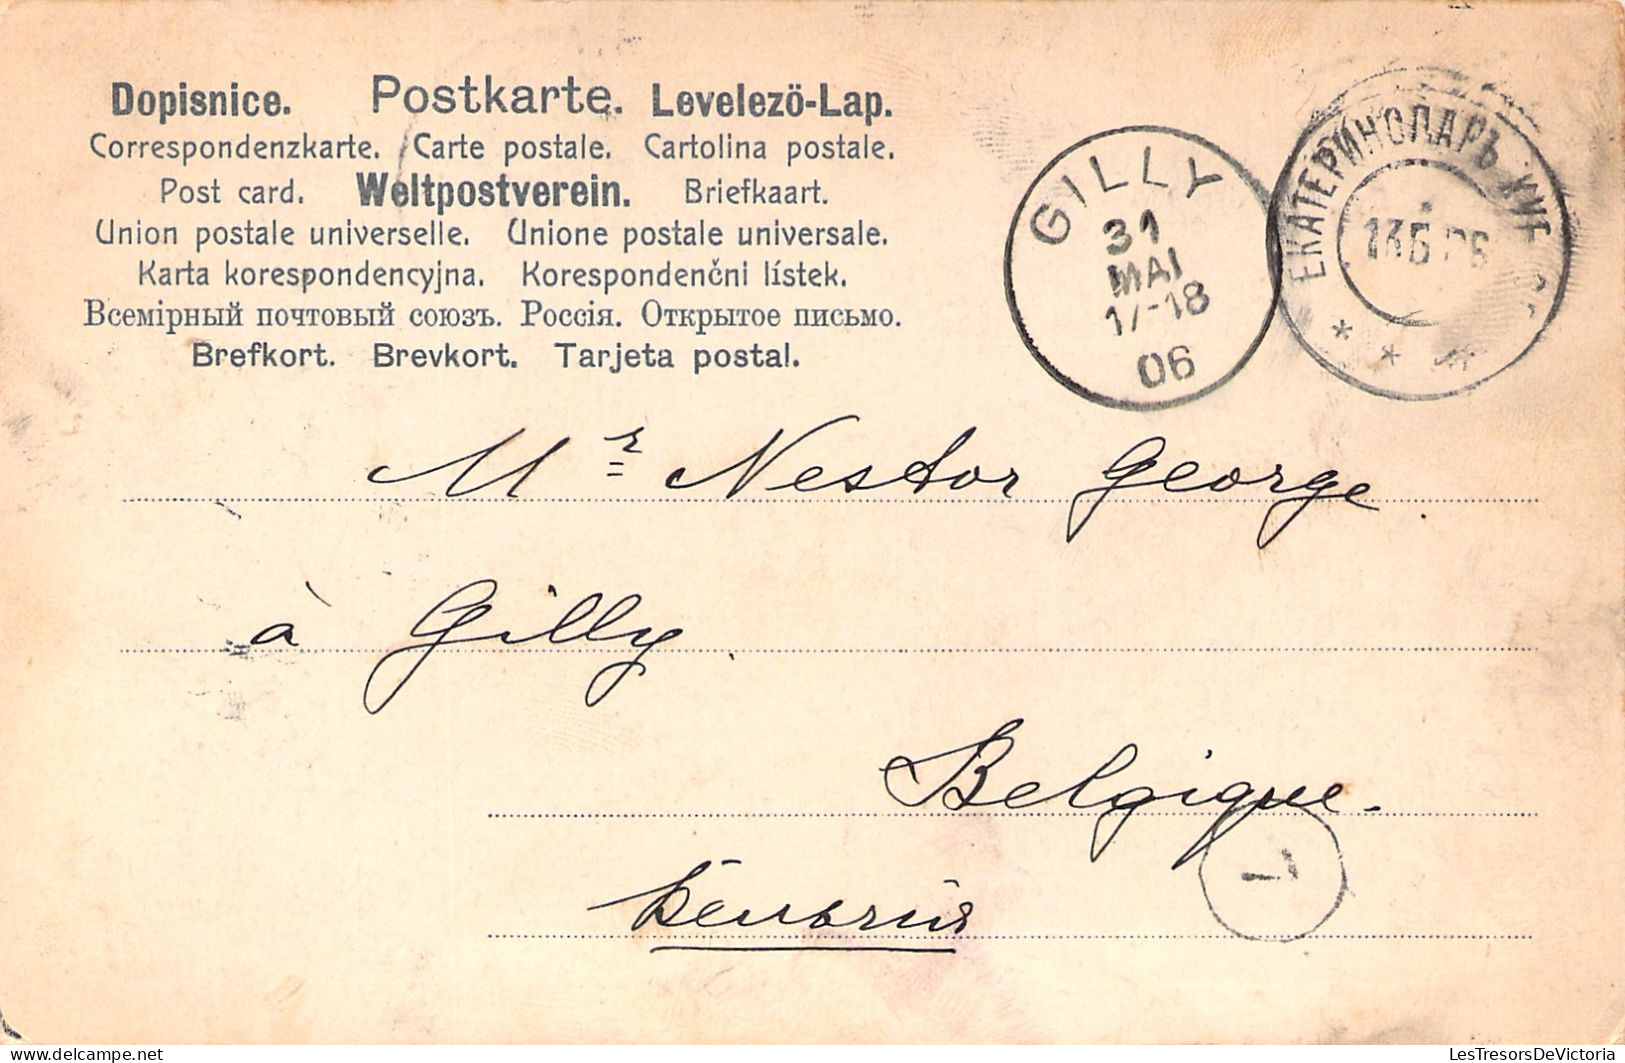 Dopisnice. Postkarte. Levelező-Lap.
Correspondenzkarte. Carte postale. Cartolina postale.
Post card. Weltpostverein. Briefkaart.
Union postale universelle. Unione postale universale.
Karta korespondencyjna. Korespondenčni lístek.
Всемірный почтовый союзъ. Россія. Открытое письмо.
Brefkort. Brevkort. Tarjeta postal.
GILLY
31
MAI
17-18
06
ЕКАТЕРИНОДАРЪ
Mr Nestor George
à Gilly.
Belgique.
Бельгия
1
LesTresorsDeVictoria
www.delcampe.net